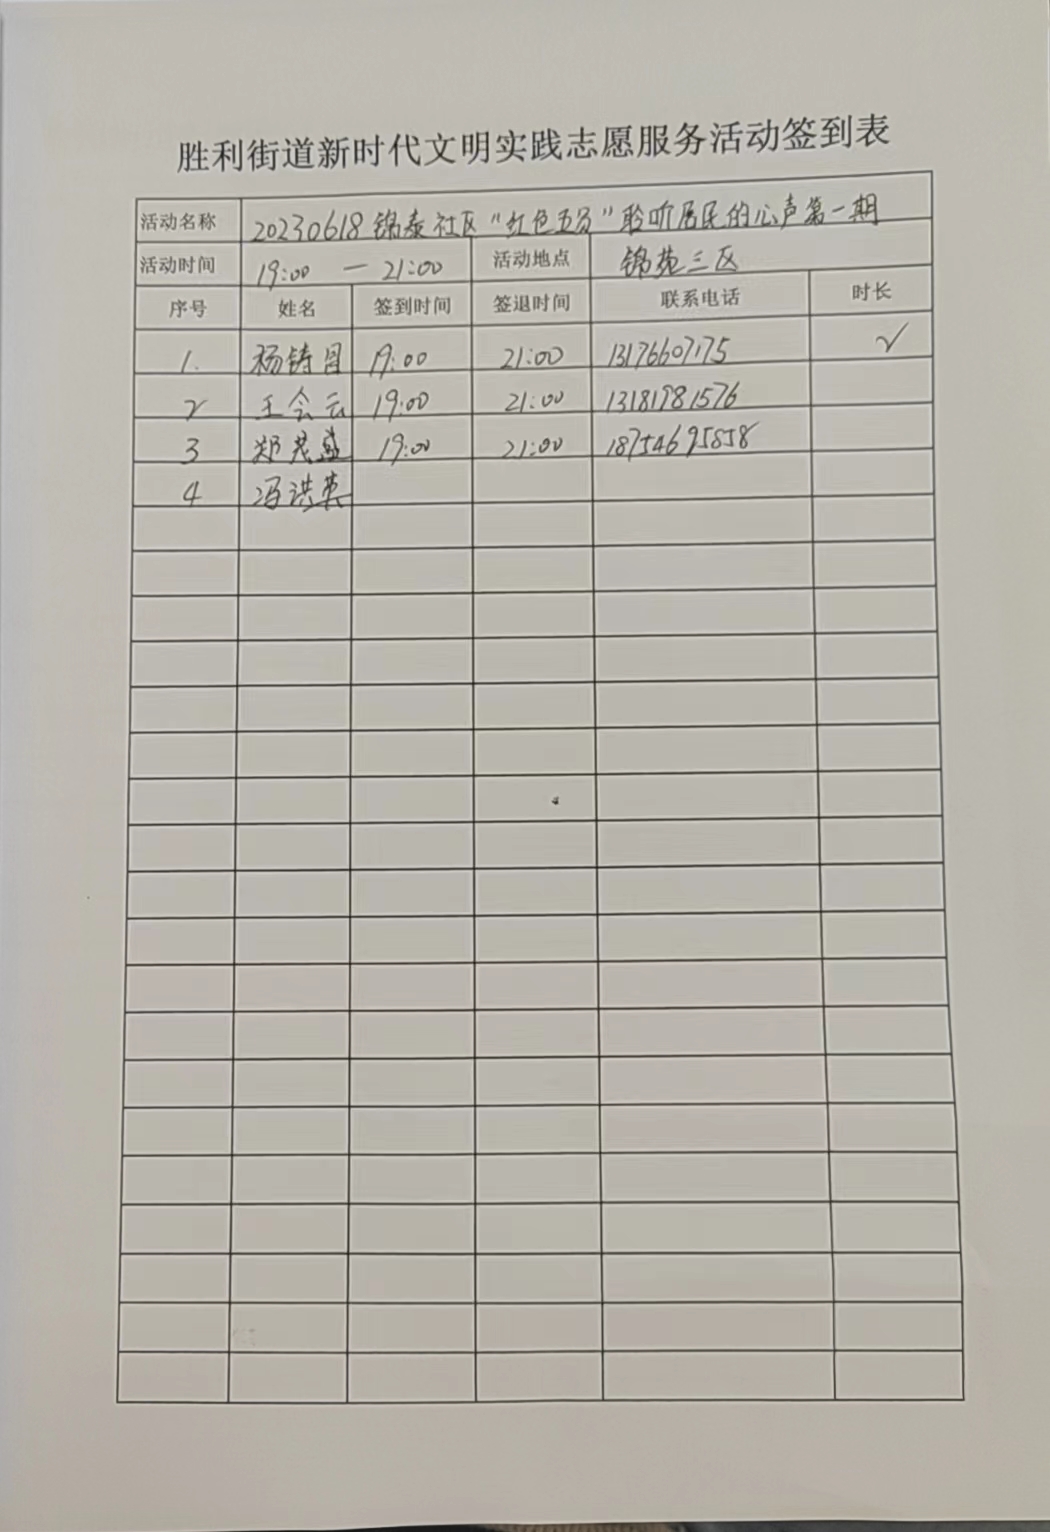 胜利街道新时代文明实践志愿服务活动签到表
活动名称 20230618锦泰社区“红色五员”聆听居民的心声第一期
活动时间 19:00 — 21:00 活动地点 锦苑三区
序号 姓名 签到时间 签退时间 联系电话 时长
1. 杨铸昌 19:00 21:00 13176607175 √
2 王会云 19:00 21:00 13181981576
3 郑茂盛 19:00 21:00 18754695858
4 冯洪英